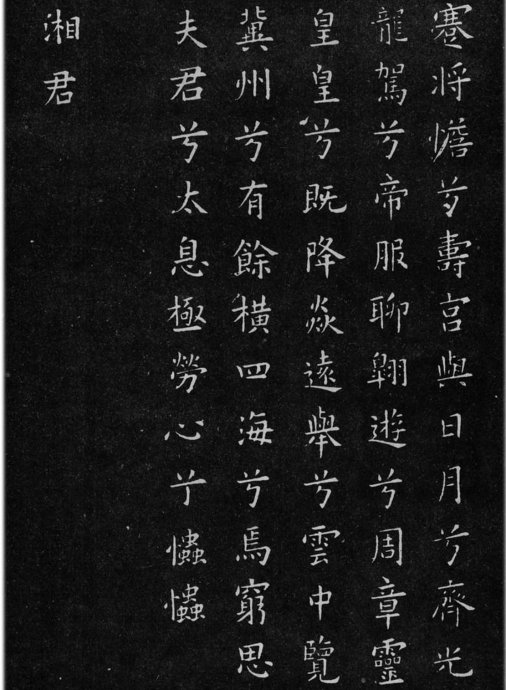 蹇将憺兮壽宫與日月兮齊光
龍駕兮帝服聊翺遊兮周章靈
皇皇兮既降焱遠舉兮雲中覽
冀州兮有餘橫四海兮焉窮思
夫君兮太息極勞心兮懺懺
湘君